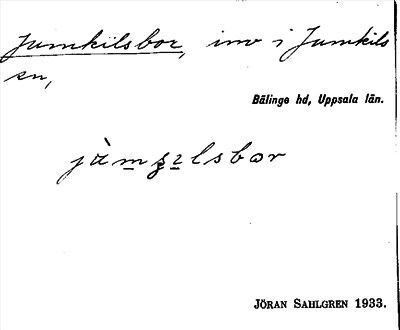 Jumkilsbor, inv i Jumkils
sn,
Bälinge hd, Uppsala län.
JÖRAN SAHLGREN 1933.